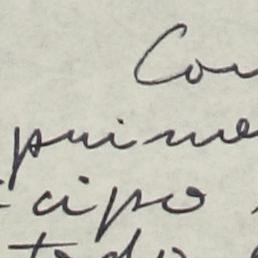 Con
prime
cipo
todo